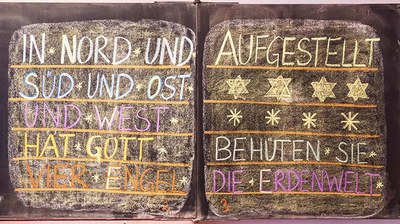 IN NORD UND
SÜD UND OST
UND WEST
HAT GOTT
VIER ENGEL
AUFGESTELLT
BEHUTEN SIE
DIE ERDENWELT